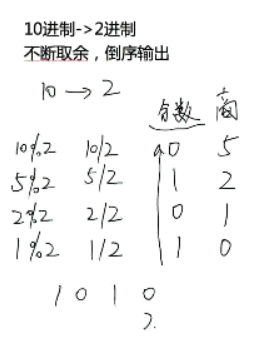 10进制->2进制
不断取余，倒序输出
10 → 2
分数 商
10%2 10/2 0 5
5%2 5/2 1 2
2%2 2/2 0 1
1%2 1/2 1 0
1 0 1 0